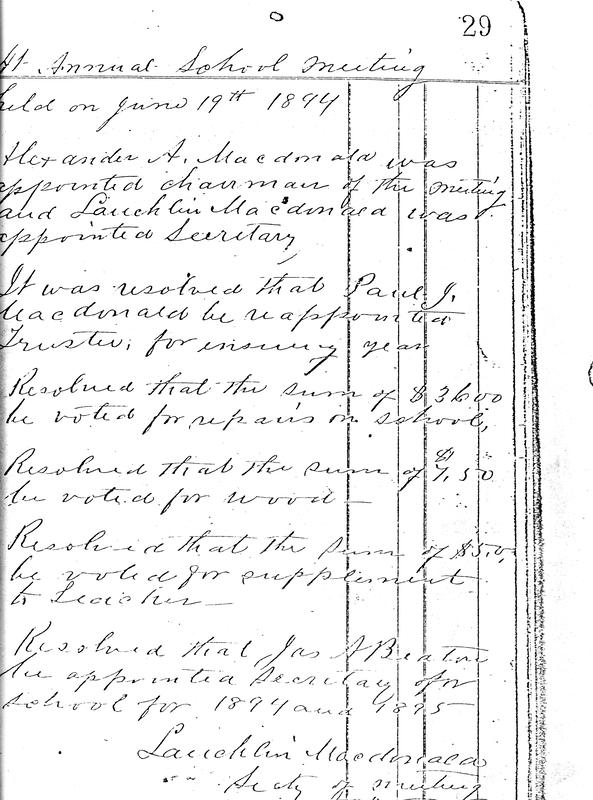 29
At Annual School meeting
held on June 19th 1894
Alexander A. Macdonald was
appointed chairman of the meeting
and Lauchlin Macdonald was
appointed Secretary
It was resolved that Paul J.
Macdonald be reappointed
Trustee; for ensuing year
Resolved that the sum of $3600
be voted for repairs on school,
Resolved that the sum of $7,50
be voted for wood —
Resolved that the sum of
be voted for supplement
to Teacher —
Resolved that Jas A Beaton
be appointed Secretary of
school for 1894 and 1895
Lauchlin Macdonald
Secty of meeting